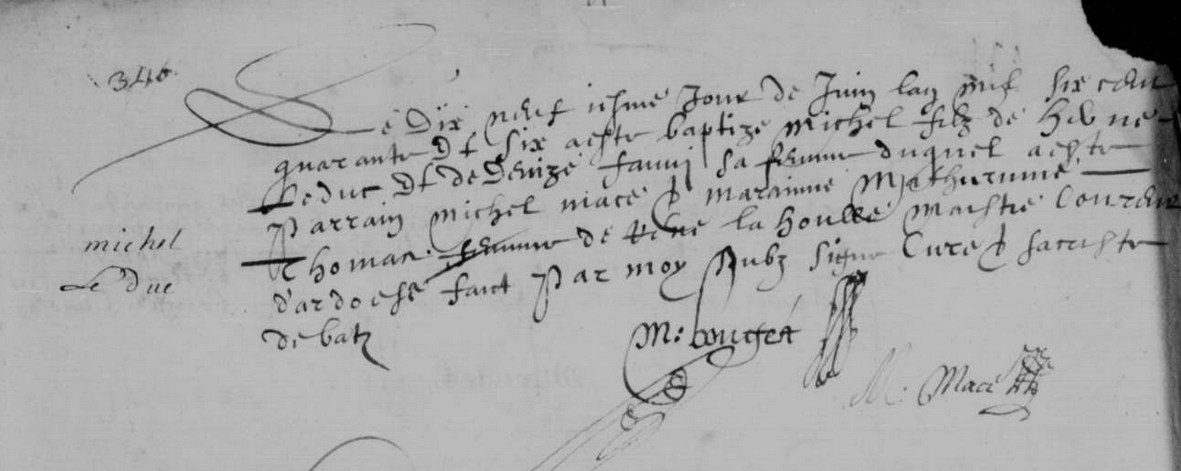 346
Le dix neuf iesme Jour de Juin lan mil six cent
quarante et six a este baptize Michel filz de
Leduc et de Denize sa femme duquel a este
Parrain Michel Mace & maraine Mathurinne
Thomas femme de René la houlle maistre Couvreur
d'ardoese faict Par moy Subz signe Curé & sacriste
de batz
michel
Le Duc
M. Mace